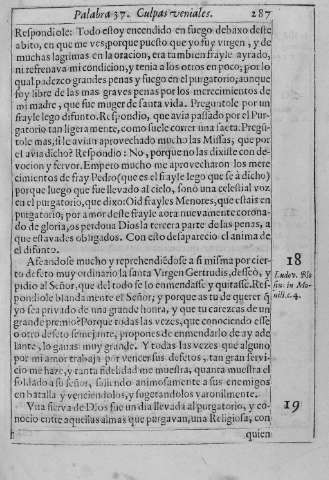 Palabra 37. Culpas veniales. 287
Respondiele: Todo estoy encendido en fuego debaxo deste
abito, en que me ves; porque puesto que yo fuy virgen, y de
muchas lagrimas en la oracion, era tambien frayle ayrado,
ni refrenava mi condicion, y tenia a los otros en poco; por lo
qual padezco grandes penas y fuego en el purgatorio, aunque
soy libre de las mas graves penas por los merecimientos de
mi madre, que fue muger de santa vida. Preguntole por un
frayle lego difunto. Respondio, que avia passado por el Pur-
gatorio tan ligeramente, como suele correr una saeta. Pregũ-
tole mas, si le avian aprovechado mucho las Missas, que por
el avia dicho? Respondio: No, porque no las dixiste con de-
vocion y fervor. Empero mucho me aprovecharon los mere
cimientos de fray Pedro (que es el frayle lego que se à dicho)
porque luego que fue llevado al cielo, sonò una celestial voz
en el purgatorio, que dixo: Oid frayles Menores, que estais en
purgatorio; por amor deste frayle aora nuevamente corona-
do de gloria, os perdona Dios la tercera parte de las penas, a
que estavades obligados. Con esto desaparecio el anima de
el difunto.
Afeandose mucho y reprehendiẽdose a si misma por cier
to defeto muy ordinario la santa Virgen Gertrudis, desseò, y
pidio al Señor, que del todo se lo enmendasse y quitasse. Res
pondiole blandamente el Señor; y porque as tu de querer q̃
yo sea privado de una grande honra, y que tu carezcas de un
grande premio? Porque todas las vezes, que conociendo esse
o otro defeto semejante, propones de enmendarlo de ay ade
lante, lo ganas muy grande. Y todas las vezes que alguno
por mi amor trabaja por vencer sus defetos, tan gran servi-
cio me haze, y tanta fidelidad me muestra, quanta muestra el
soldado a su señor, saliendo animosamente a sus enemigos
en batalla y venciendolos, y sugetandolos varonilmente.
Vna sierva de Dios fue un dia llevada al purgatorio, y co-
nocio entre aquellas almas que purgavan, una Religiosa, con
quien
18
Ludov. Blo
sius in Mo-
nili. c. 4.
19